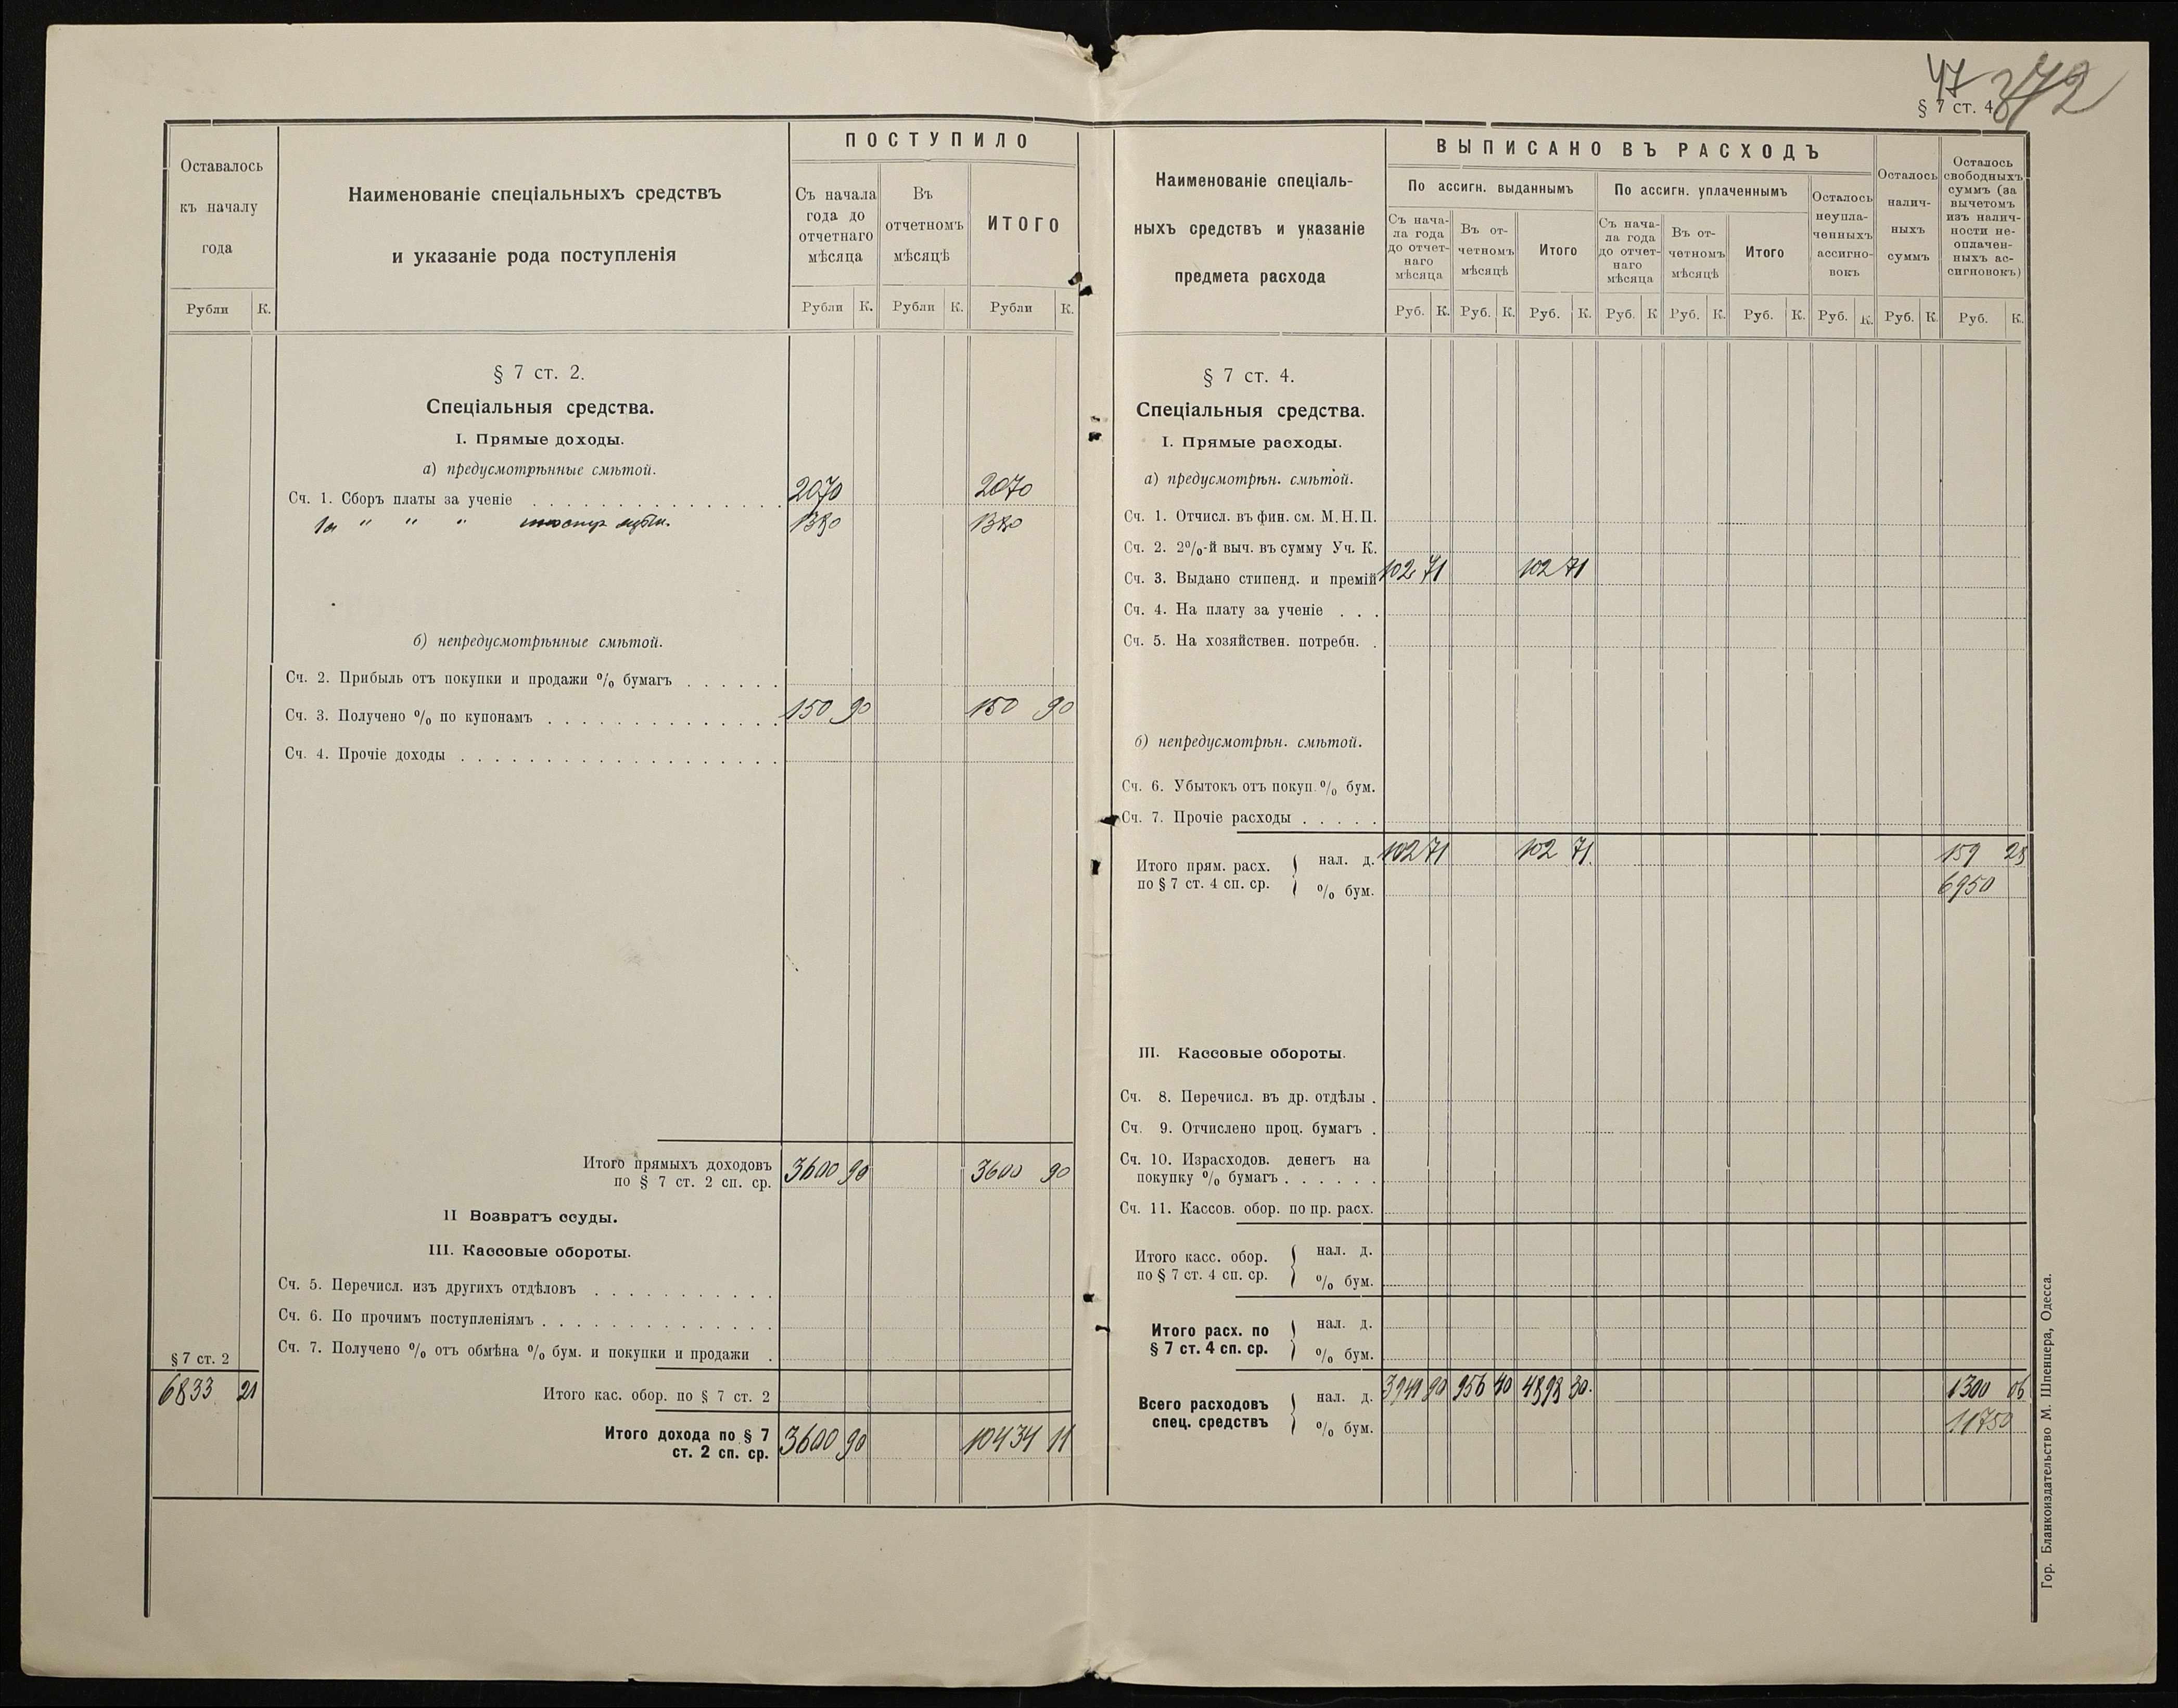 47
372
§ 7 ст. 4
Оставалось
къ началу
года
Рубли К.
Наименованіе спеціальныхъ средствъ
и указаніе рода поступленія
ПОСТУПИЛО
Съ начала
года до
отчетнаго
мѣсяца
Въ
отчетномъ
мѣсяцѣ
ИТОГО
Рубли К. Рубли К. Рубли К.
§ 7 ст. 2.
Спеціальныя средства.
I. Прямые доходы.
а) предусмотрѣнные смѣтой.
Сч. 1. Сборъ платы за ученіе 2070 2070
1а " " " 1380 1380
б) непредусмотрѣнные смѣтой.
Сч. 2. Прибыль отъ покупки и продажи % бумагъ
Сч. 3. Получено % по купонамъ 150 90 150 90
Сч. 4. Прочіе доходы
Итого прямыхъ доходовъ
по § 7 ст. 2 сп. ср. 3600 90 3600 90
II Возвратъ ссуды.
III. Кассовые обороты.
Сч. 5. Перечисл. изъ другихъ отдѣловъ
Сч. 6. По прочимъ поступленіямъ
Сч. 7. Получено % отъ обмѣна % бум. и покупки и продажи
§ 7 ст. 2
6833 21
Итого кас. обор. по § 7 ст. 2
Итого дохода по § 7
ст. 2 сп. ср. 3600 90 10434 11
Наименованіе спеціаль-
ныхъ средствъ и указаніе
предмета расхода
ВЫПИСАНО ВЪ РАСХОДЪ
По ассигн. выданнымъ
Съ нача-
ла года
до отчет-
наго
мѣсяца
Въ от-
четномъ
мѣсяцѣ
Итого
По ассигн. уплаченнымъ
Съ нача-
ла года
до отчет-
наго
мѣсяца
Въ от-
четномъ
мѣсяцѣ
Итого
Осталось
неупла-
ченныхъ
ассигно-
вокъ
Осталось
налич-
ныхъ
суммъ
Осталось
свободныхъ
суммъ (за
вычетомъ
изъ налич-
ности не-
оплачен-
ныхъ ас-
сигновокъ)
Руб. К. Руб. К. Руб. К. Руб. К Руб. К. Руб. К. Руб. К. Руб. К. Руб. К.
§ 7 ст. 4.
Спеціальныя средства.
I. Прямые расходы.
а) предусмотрѣн. смѣтой.
Сч. 1. Отчисл. въ фин. см. М.Н.П.
Сч. 2. 2%-й выч. въ сумму Уч. К.
Сч. 3. Выдано стипенд. и премій 102 71 102 71
Сч. 4. На плату за ученіе
Сч. 5. На хозяйствен. потребн.
б) непредусмотрѣн. смѣтой.
Сч. 6. Убытокъ отъ покуп. % бум.
Сч. 7. Прочіе расходы
Итого прям. расх.
по § 7 ст. 4 сп. ср.
нал. д. 102 71 102 71 159 25
% бум. 6950
III. Кассовые обороты.
Сч. 8. Перечисл. въ др. отдѣлы
Сч. 9. Отчислено проц. бумагъ
Сч. 10. Израсходов. денегъ на
покупку % бумагъ
Сч. 11. Кассов. обор. по пр. расх.
Итого касс. обор.
по § 7 ст. 4 сп. ср.
нал. д.
% бум.
Итого расх. по
§ 7 ст. 4 сп. ср.
нал. д.
% бум.
Всего расходовъ
спец. средствъ
нал. д. 3941 90 956 40 4898 30 1300 06
% бум. 11750
Гор. Бланкоиздательство М. Шпенцера, Одесса.